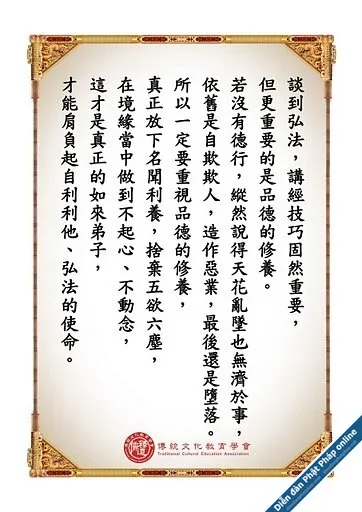 談到弘法，講經技巧固然重要，
但更重要的是品德的修養。
若沒有德行，縱然說得天花亂墜也無濟於事，
依舊是自欺欺人，造作惡業，最後還是墮落。
所以一定要重視品德的修養，
真正放下名聞利養，捨棄五欲六塵，
在境緣當中做到不起心、不動念，
這才是真正的如來弟子，
才能肩負起自利利他、弘法的使命。
傳統文化教育學會
Traditional Cultural Education Association
Diễn đàn Phật Pháp online